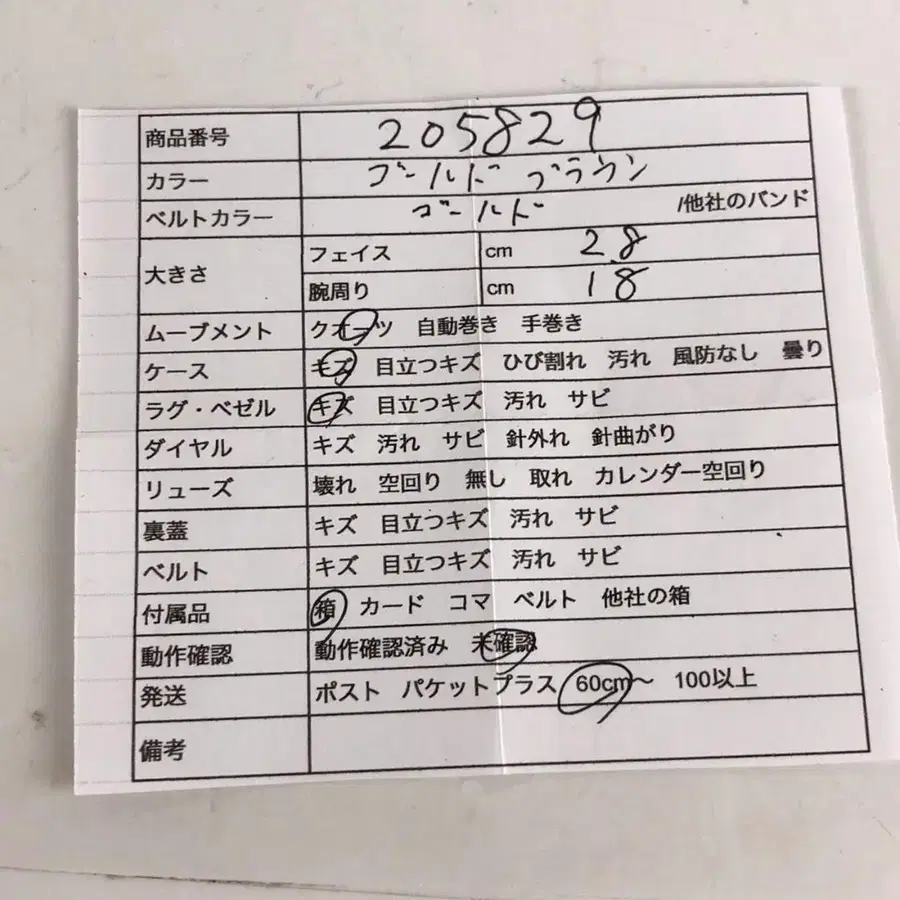 商品番号 205829
カラー ゴールド ブラウン
ベルトカラー ゴールド /他社のバンド
大きさ フェイス cm 2.8
腕周り cm 18
ムーブメント クオーツ 自動巻き 手巻き
ケース キズ 目立つキズ ひび割れ 汚れ 風防なし 曇り
ラグ・ベゼル キズ 目立つキズ 汚れ サビ
ダイヤル キズ 汚れ サビ 針外れ 針曲がり
リューズ 壊れ 空回り 無し 取れ カレンダー空回り
裏蓋 キズ 目立つキズ 汚れ サビ
ベルト キズ 目立つキズ 汚れ サビ
付属品 箱 カード コマ ベルト 他社の箱
動作確認 動作確認済み 未確認
発送 ポスト パケットプラス 60cm〜 100以上
備考